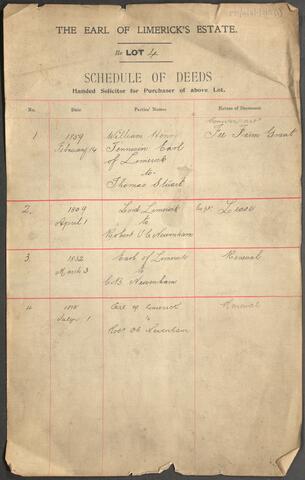 THE EARL OF LIMERICK'S ESTATE.
Re LOT 4
SCHEDULE OF DEEDS
Handed Solicitor for Purchaser of above Lot.
No. Date Parties' Names Nature of Document
1 1859 William Henry Counterpart
February 14 Tennison Earl Fee Farm Grant
of Limerick
to
Thomas Stuart
2. 1809 Lord Limerick Lease
April 1 to
Robert Newenham
3 1832 Earl of Limerick Renewal
March 3 to
Newenham
4 Earl of Limerick Renewal
1 to
Newenham